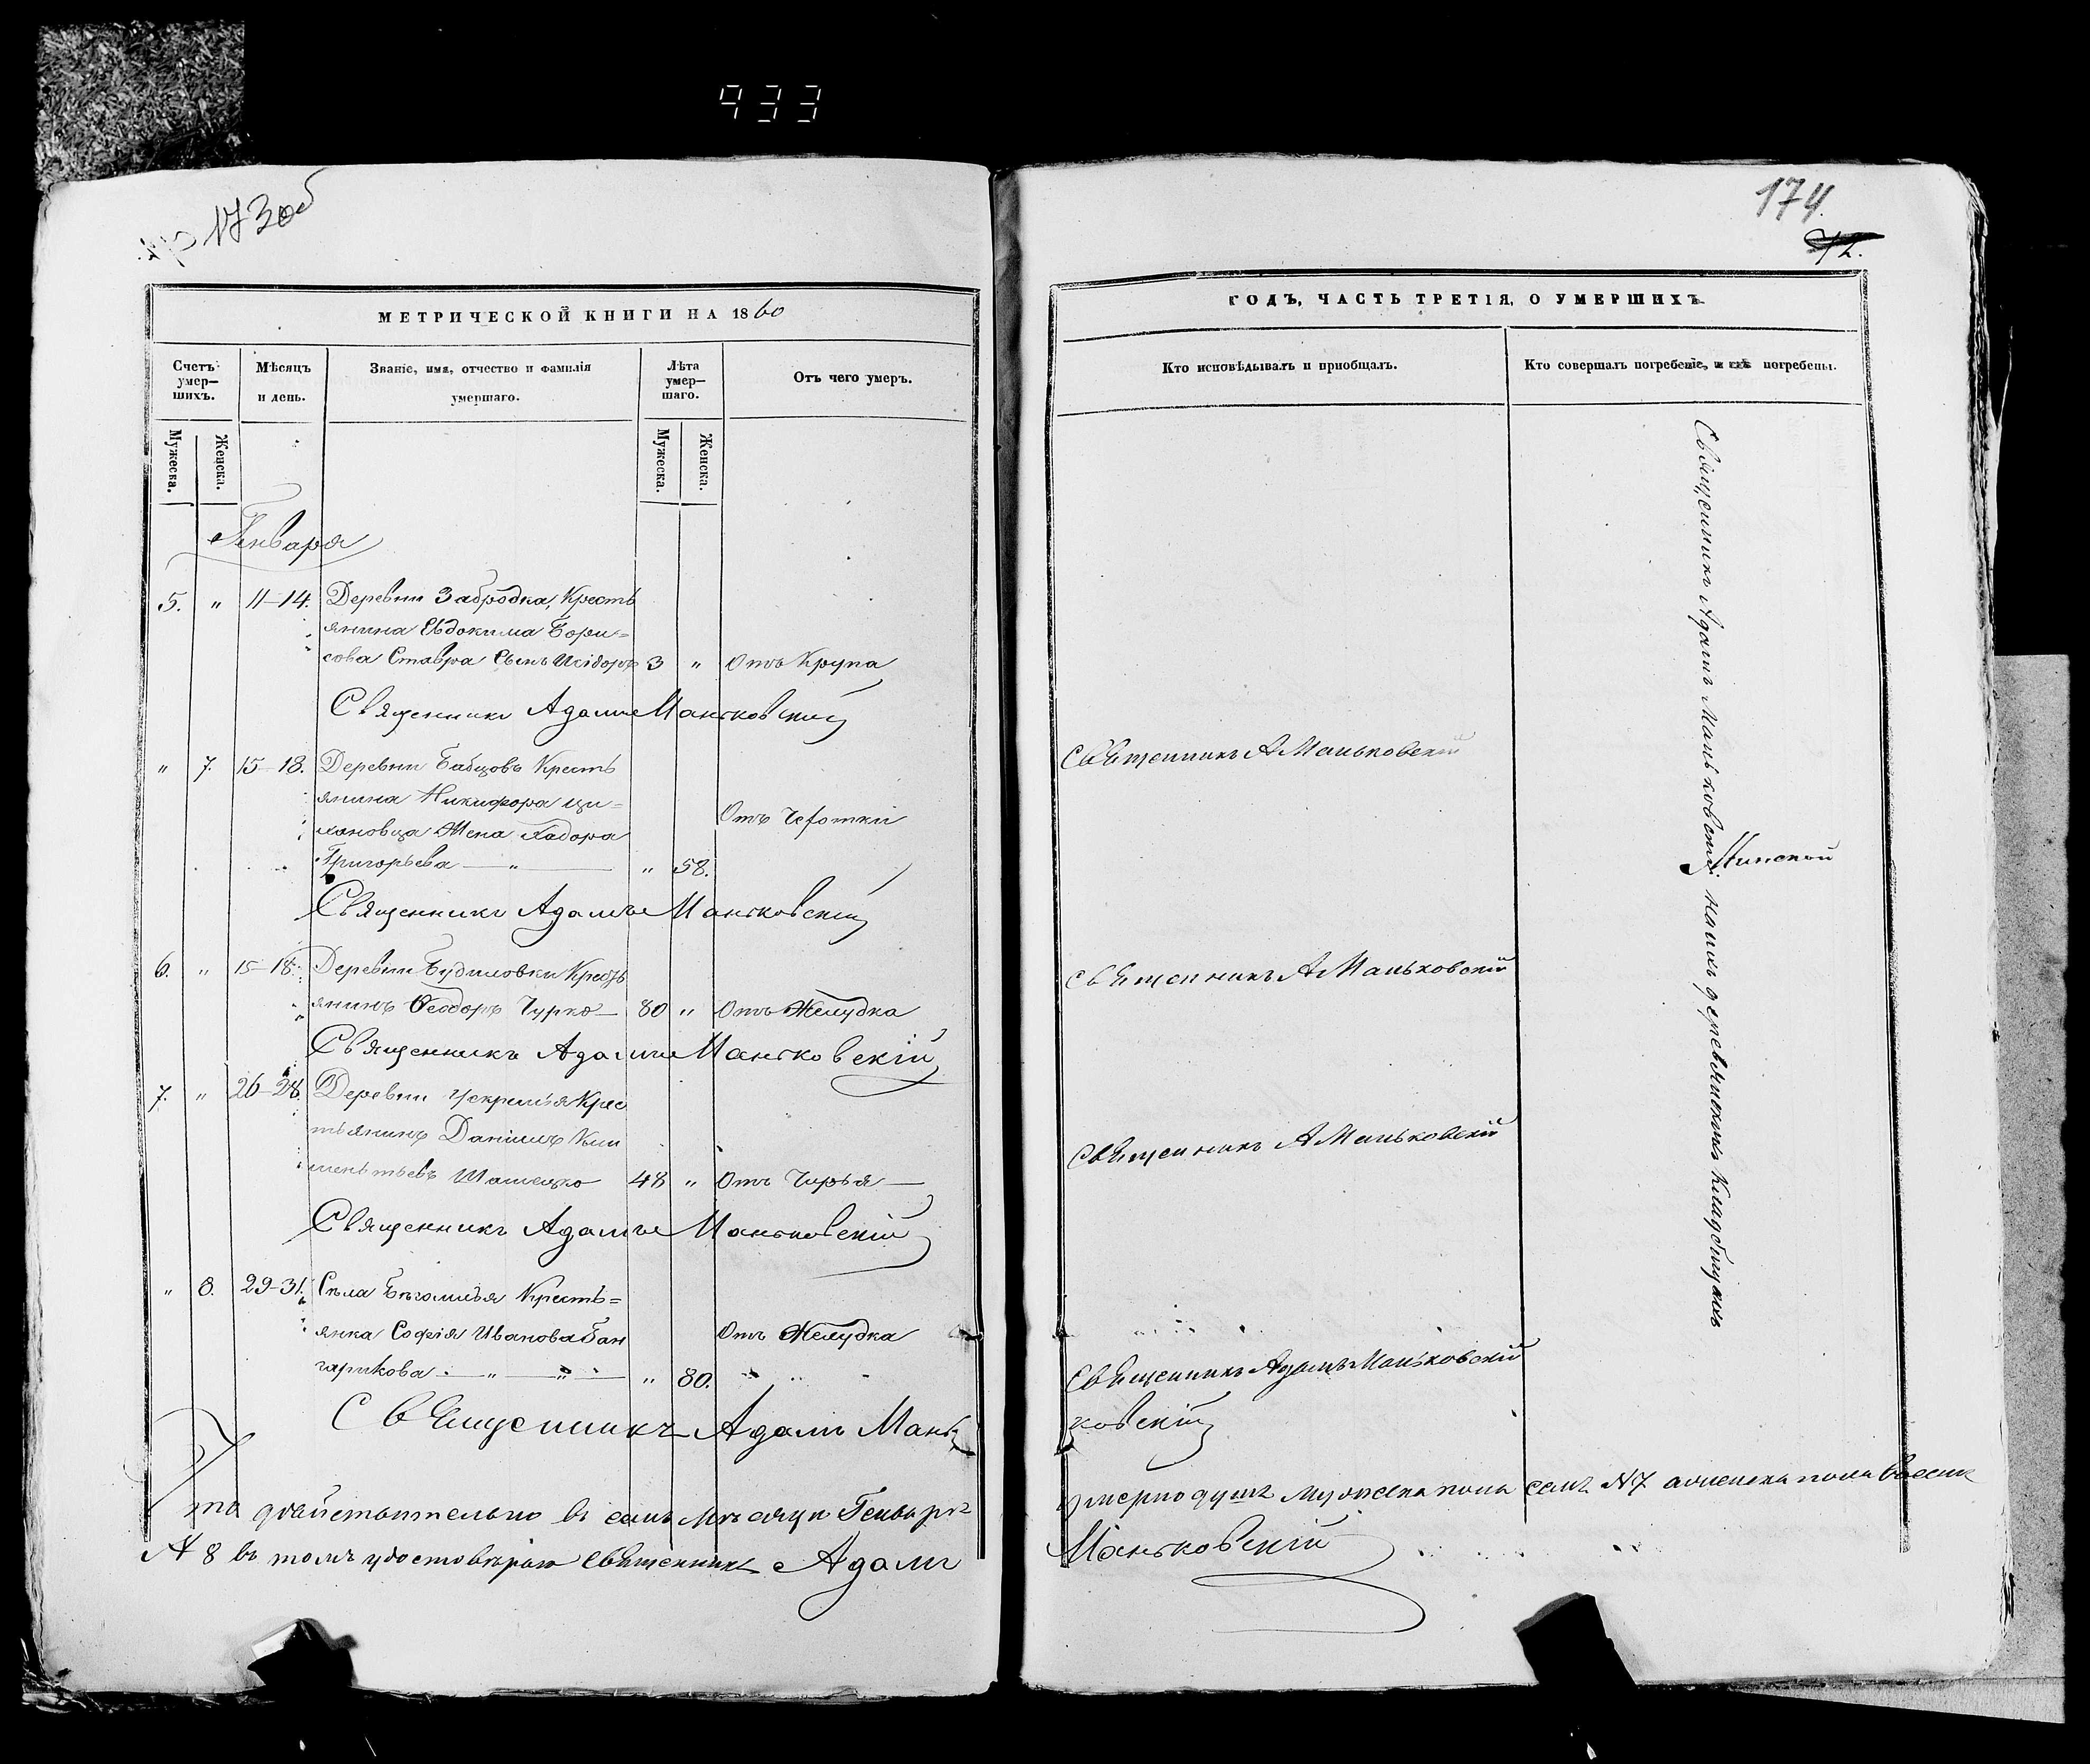 933
173об
174
72.
МЕТРИЧЕСКОЙ КНИГИ НА 1860
ГОДЪ, ЧАСТЬ ТРЕТІЯ, О УМЕРШИХЪ
Счетъ умер-шихъ.
Мужеска.
Женска.
Мѣсяцъ и день.
Званіе, имя, отчество и фамилія умершаго.
Лѣта умер-шаго.
Мужеска.
Женска.
Отъ чего умеръ.
Кто исповѣдывалъ и пріобщалъ.
Кто совершалъ погребеніе, и гдѣ погребены.
Генваря
5. " 11–14. Деревни Забродка, Кресть
янина Евдокима Бори=
сова Ставра Сынъ Исідоръ 3 " Отъ Крупа
Священникъ Адамъ Маньковскій
" 7. 15–18. Деревни Бабцовъ Кресть
янина Никифора Ци=
хановца Жена Хадора Отъ Чехотки
Григорьева " " 58.
Священникъ Адамъ Маньковскій
Священникъ А Маньковскій
6. " 15–18. Деревни Будиловки Кресть
янинъ Ѳеодоръ Чурко 80 " Отъ Желудка
Священникъ Адамъ Маньковскій
Священникъ А Маньковскій
7. " 26–28. Деревни Крес
тьянинъ Даніилъ Кли
ментьевъ 48 " Отъ Чирья
Священникъ Адамъ Маньковскій
Священникъ А Маньковскій
" 8. 29–31. Села Бѣгомлья Кресть=
янка Софія Иванова Бан Отъ Желудка
чарикова " " " 80.
Священникъ Адамъ Маньковскій
Священникъ Адамъ Мань
ковскій
Священникъ Адамъ Маньковскій на ихъ деревянскихъ Кладбищахъ
Что дѣйствительно въ семъ мѣсяцѣ Генварѣ умерло душъ мужеска пола семь N 7 а женска пола восемь
N 8 въ томъ удостовѣряю Священникъ Адамъ Маньковскій